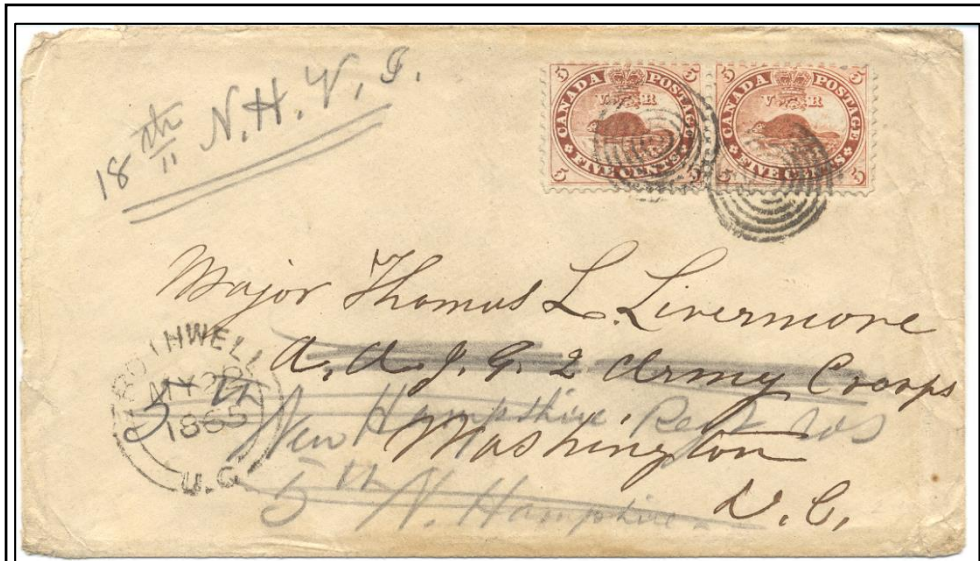 18th N.H.V.I.
5 CANADA POSTAGE 5
V R
FIVE CENTS
5 5
5 CANADA POSTAGE 5
V R
FIVE CENTS
5 5
Major Thomas L. Livermore
A.A.I.G. 2 Army Coorps
5th
New Hampshire Regt Vos
Washington
5th N. Hampshire
D.C.
BOTHWELL
MY
1865
U.C.